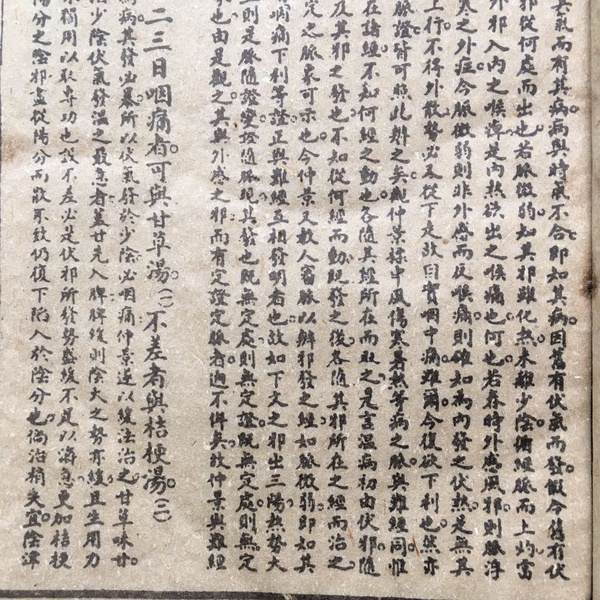 其氣而有其病病與時氣不合即知其病因舊有伏氣而發假令舊有伏
邪從何處而出也若脈微弱知其邪雖化熱未離少陰循經脈而上灼當
外邪入內之喉痺是內熱欲出之喉痛也何也若春時外感風邪則脈浮
之外症今脈微弱則非外感而反喉痛則確知為內發之伏熱是無其
上行不得外散勢必又從下走故曰實咽中痛難爾今復欲下利也然亦
脈證皆可照此辨之矣觀仲景論中風傷寒暑熱等病之脈與難經同惟
在諸經不知何經之動也各隨其經所在而取之是言溫病初由伏邪隨
及其邪之發也不知從何經而動既發之後各隨其邪所在之經而治之
定之脈象可示也今仲景又教人審脈以辨邪發之經如脈微弱即知其
咽痛下利等證正與難經互相發明者也故如下文之邪出三陽熱勢大
則是脈隨證變證隨脈現其發也既無定處則無定證既無定處則無定
也由是觀之其與外感之邪而有定證定脈者迥不侔矣故仲景與難經
二三日咽痛者可與甘草湯(一)不差者與桔梗湯(二)
病其發必暴所以伏氣發於少陰必咽痛仲景遂以緩法治之甘草味甘
治少陰伏氣發溫之最急者蓋甘先入脾脾緩則陰火之勢亦緩且生用力
獨用以取專功也設不差必是伏邪所發勢盛緩不足以濟急更加桔梗
分之陰邪盡從陽分而散不致仍復下陷入於陰分也倘治稍失宜陰津